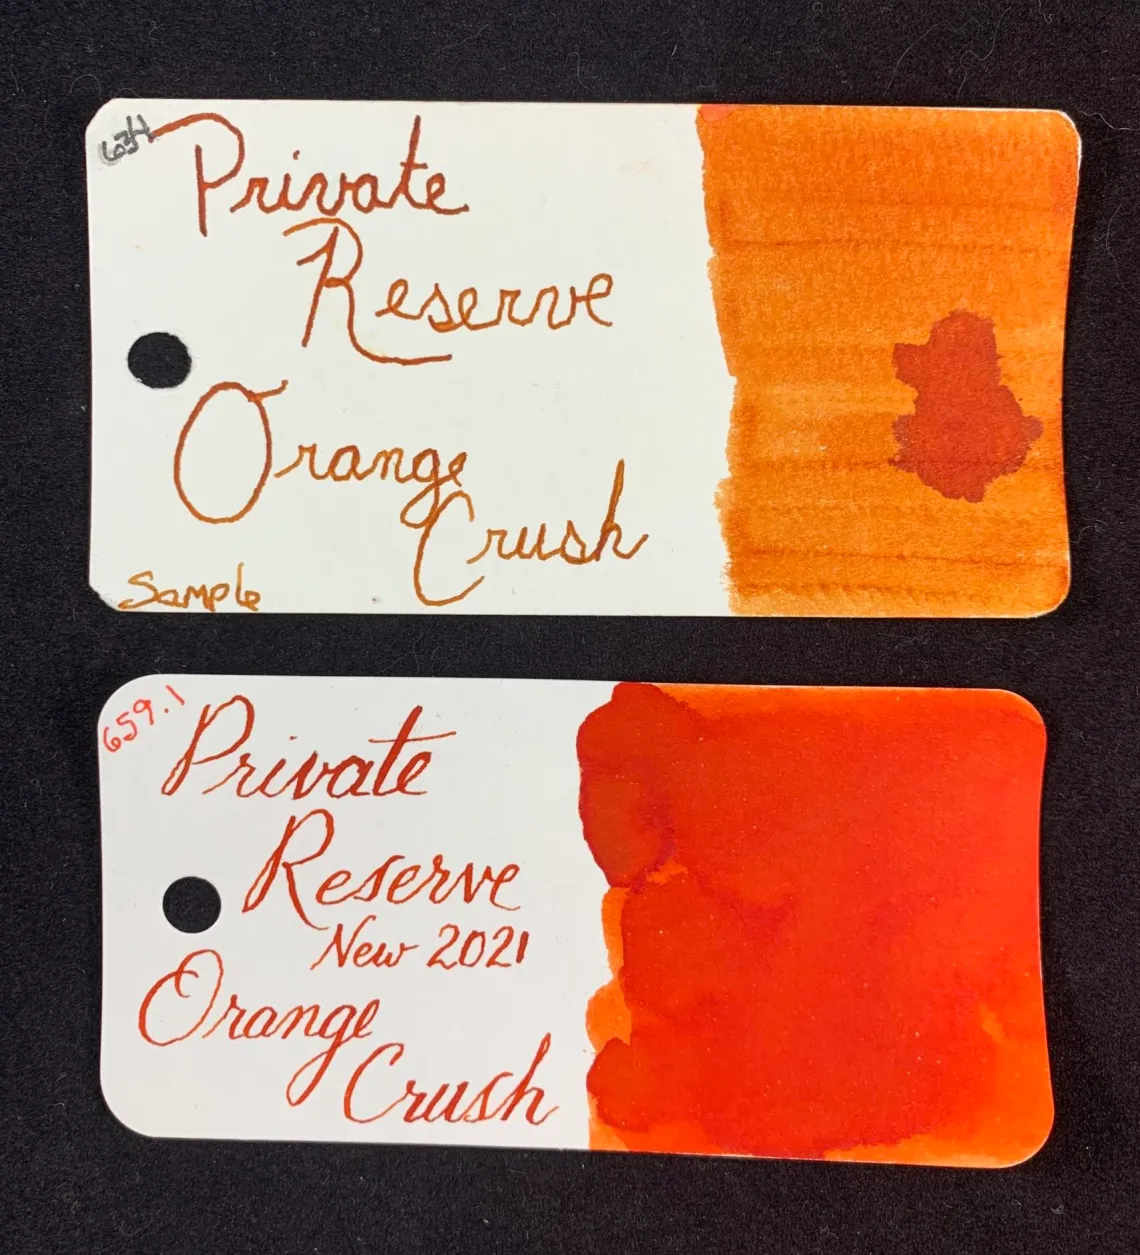 634
Private
Reserve
Orange
Crush
Sample
659.1
Private
Reserve
New 2021
Orange
Crush